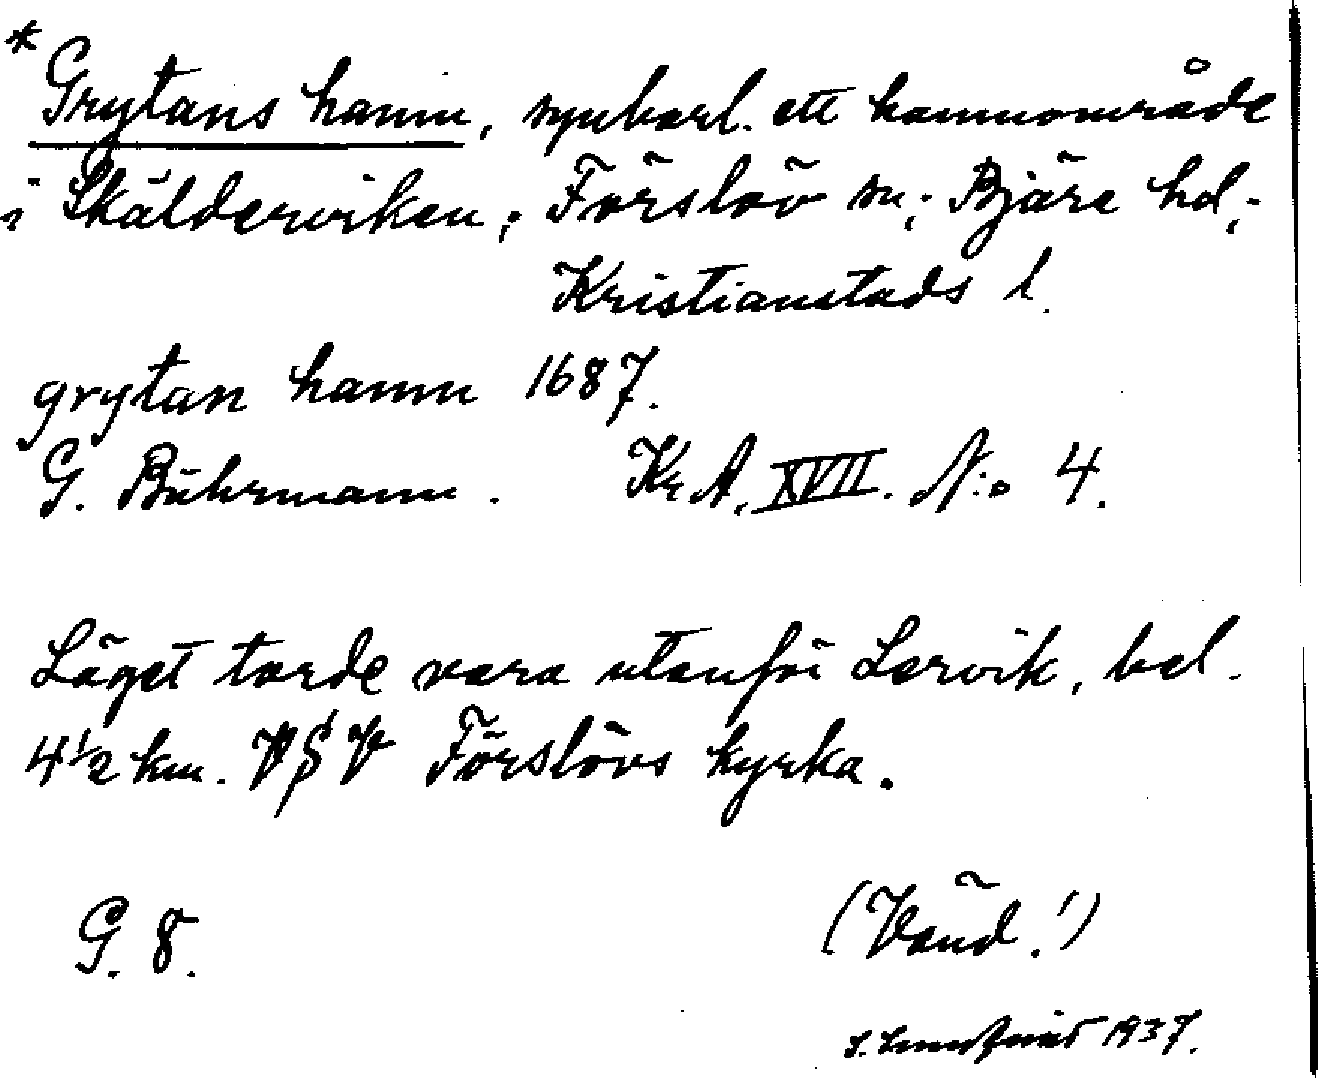 * Grytans hamn, synbarl. ett hamnområde
i Skälderviken; Förslöv sn; Bjäre hd;
Kristianstads l.
grytan hamn 1687.
G. Buhrmann. Kr A. XVII. N:o 4.
Läget torde vara utanför Lervik, bel.
4 1/2 km. VSV Förslövs kyrka.
G. 8. (Vänd!)
1937.